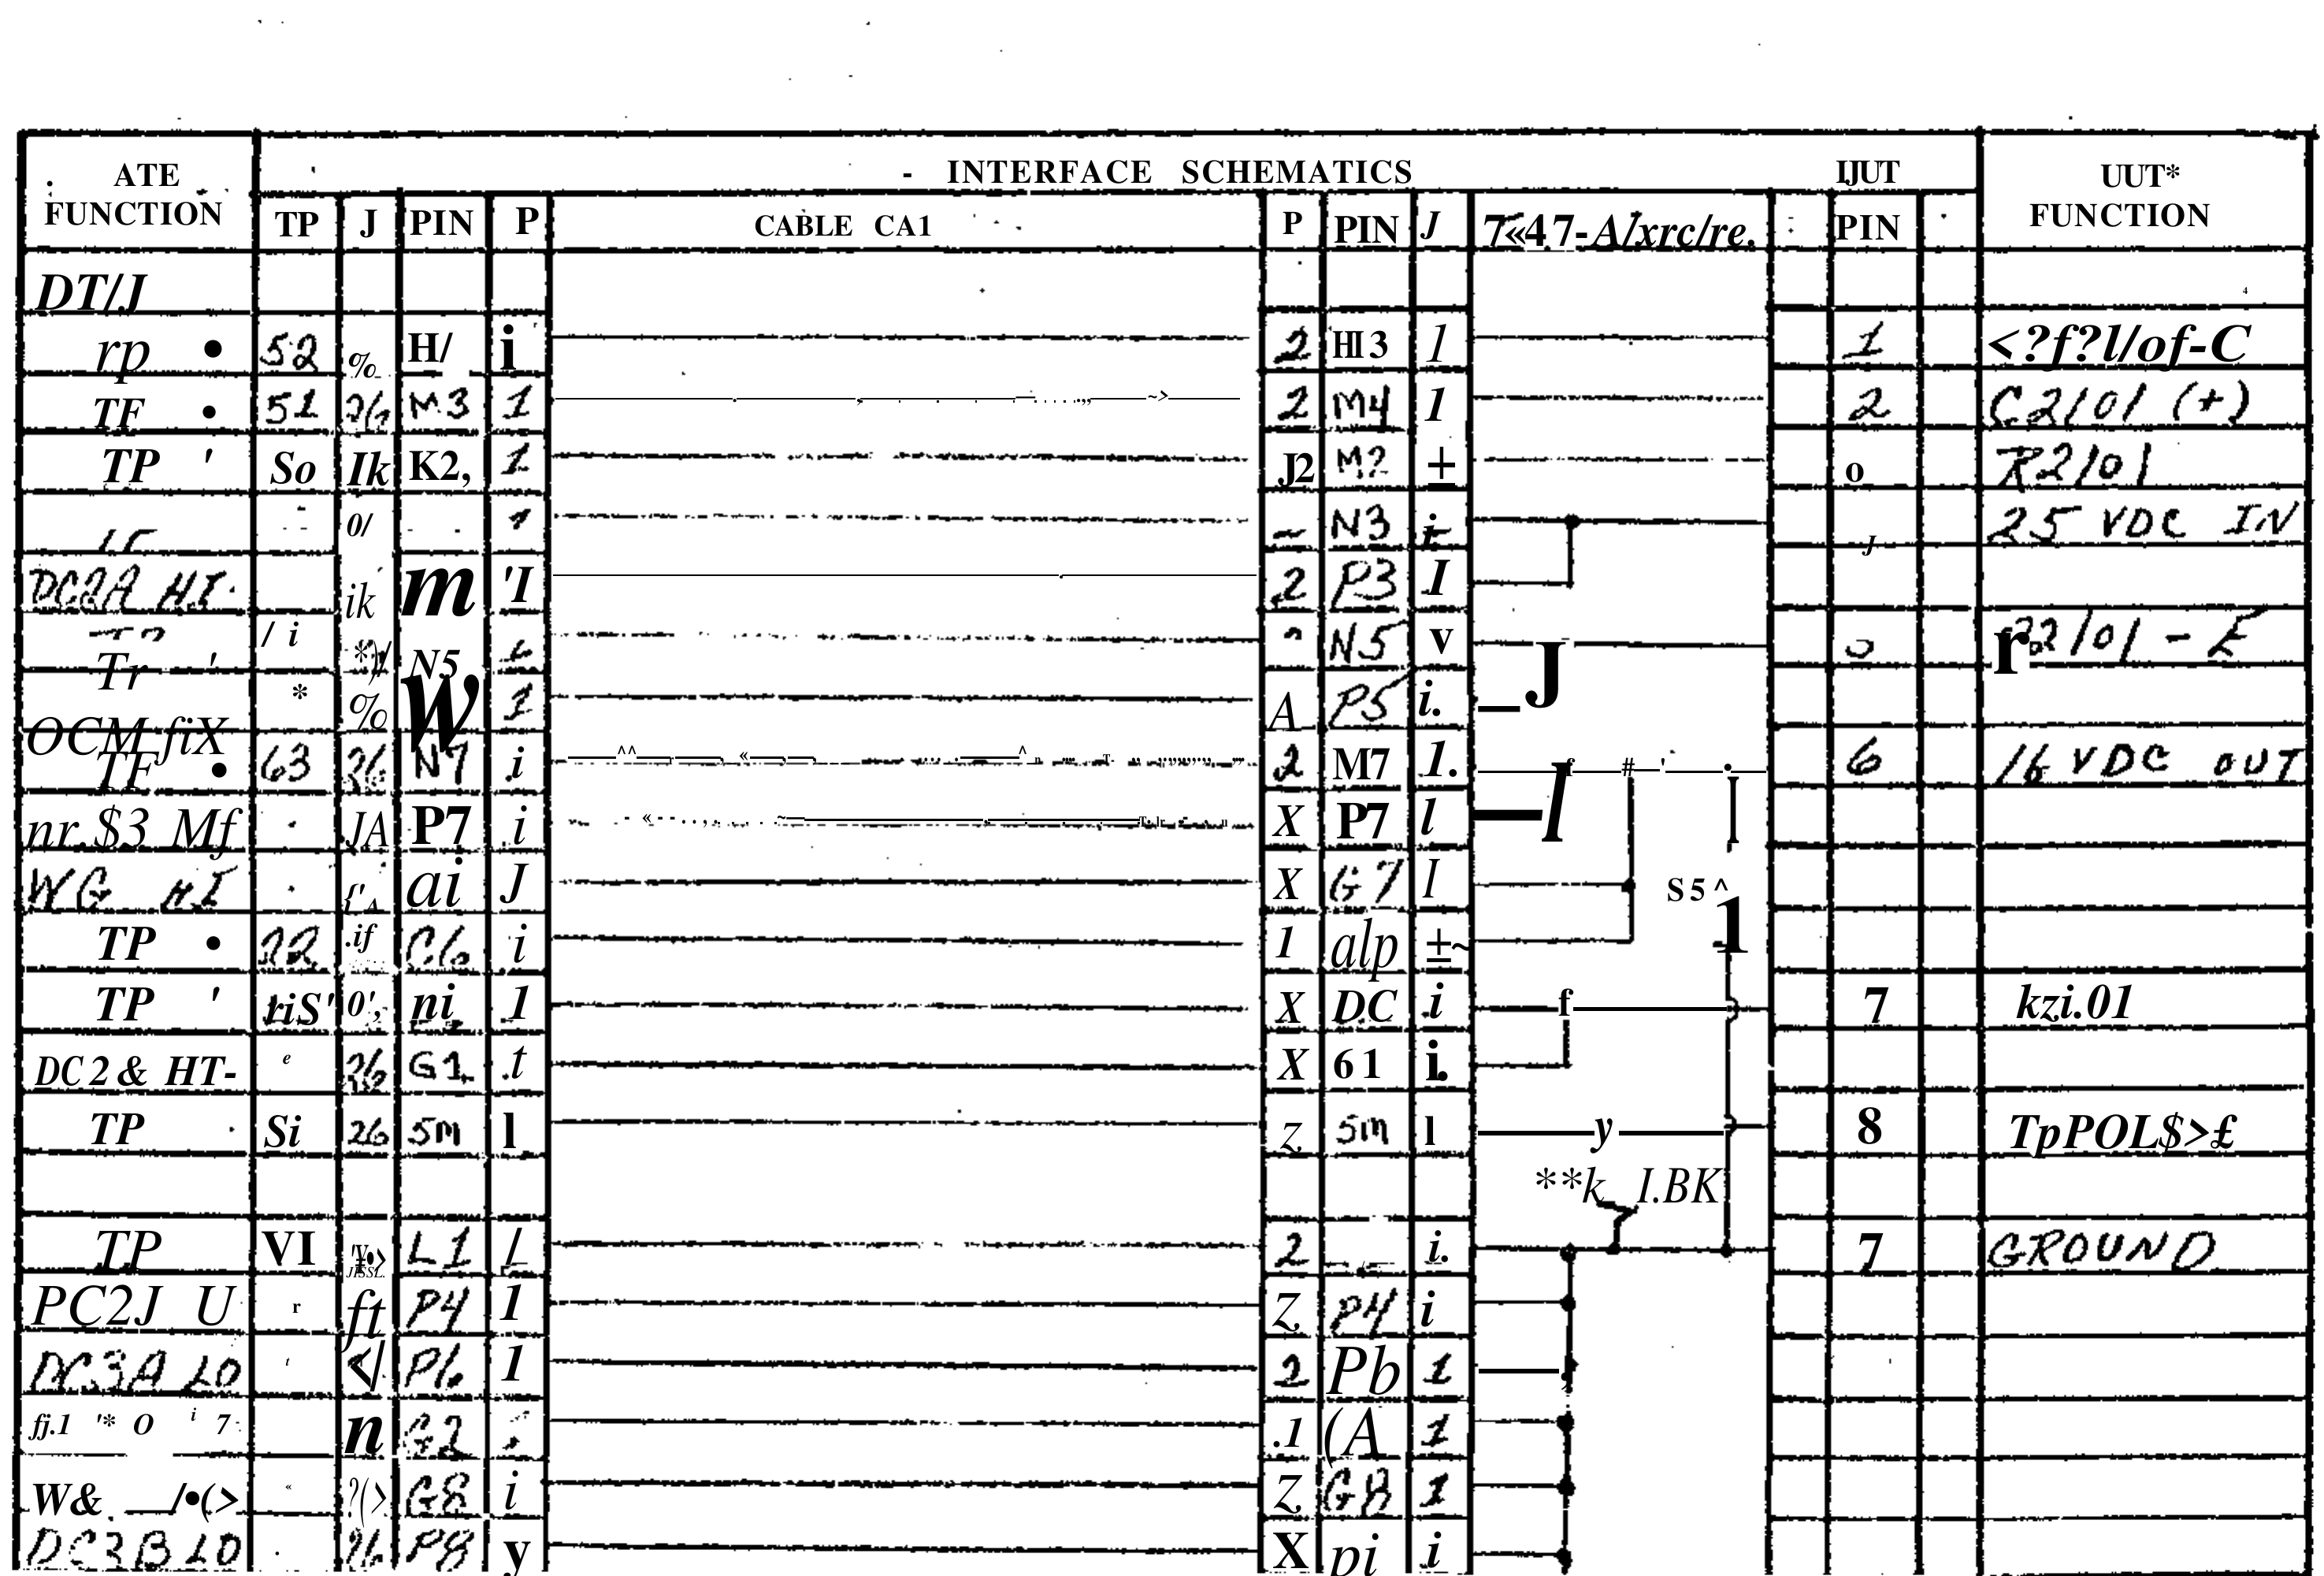 ATE FUNCTION - INTERFACE SCHEMATICS IJUT UUT* FUNCTION
TP J PIN P CABLE CA1 P PIN J 7«47-A/xrc/re. PIN
DT/J
rp • 52 % H/ i 2 HI3 1 1 <?f?l/of-C
TF • 51 26 M3 1 2 M4 1 2 C2101 (+)
TP ' So Ik K2, 1 J2 M2 ± o R2101
0/ N3 25 VDC IN
DC2A HI ik m 'I 2 P3 I
Tr ' / i N5 N5 v 22101 - E
OCM fiX * % W 1 A P5 i. J
TF • 63 26 N7 i 2 M7 1. 6 16 VDC OUT
nr.$3 Mf JA P7 i X P7 l l
WG HI ai J X G7 I S5^
TP • 22 .if C6 i 1 alp ±~ 1
TP ' riS' 0', ni 1 X DC i f 7 kzi.01
DC2& HT- e 26 G1 t X 61 i.
TP Si 26 5M l Z 5M l y 8 TpPOL$>£
**k I.BK
TP VI L1 / 2 i. 7 GROUND
PC2J U r ft P4 1 Z P4 i
DC3A LO </ P6 1 2 Pb 1
fj.1 '* O i 7 n G2 .1 (A 1
W& /•(> ?(> G8 i Z G8 1
DC3B LO 26 P8 y X pi i